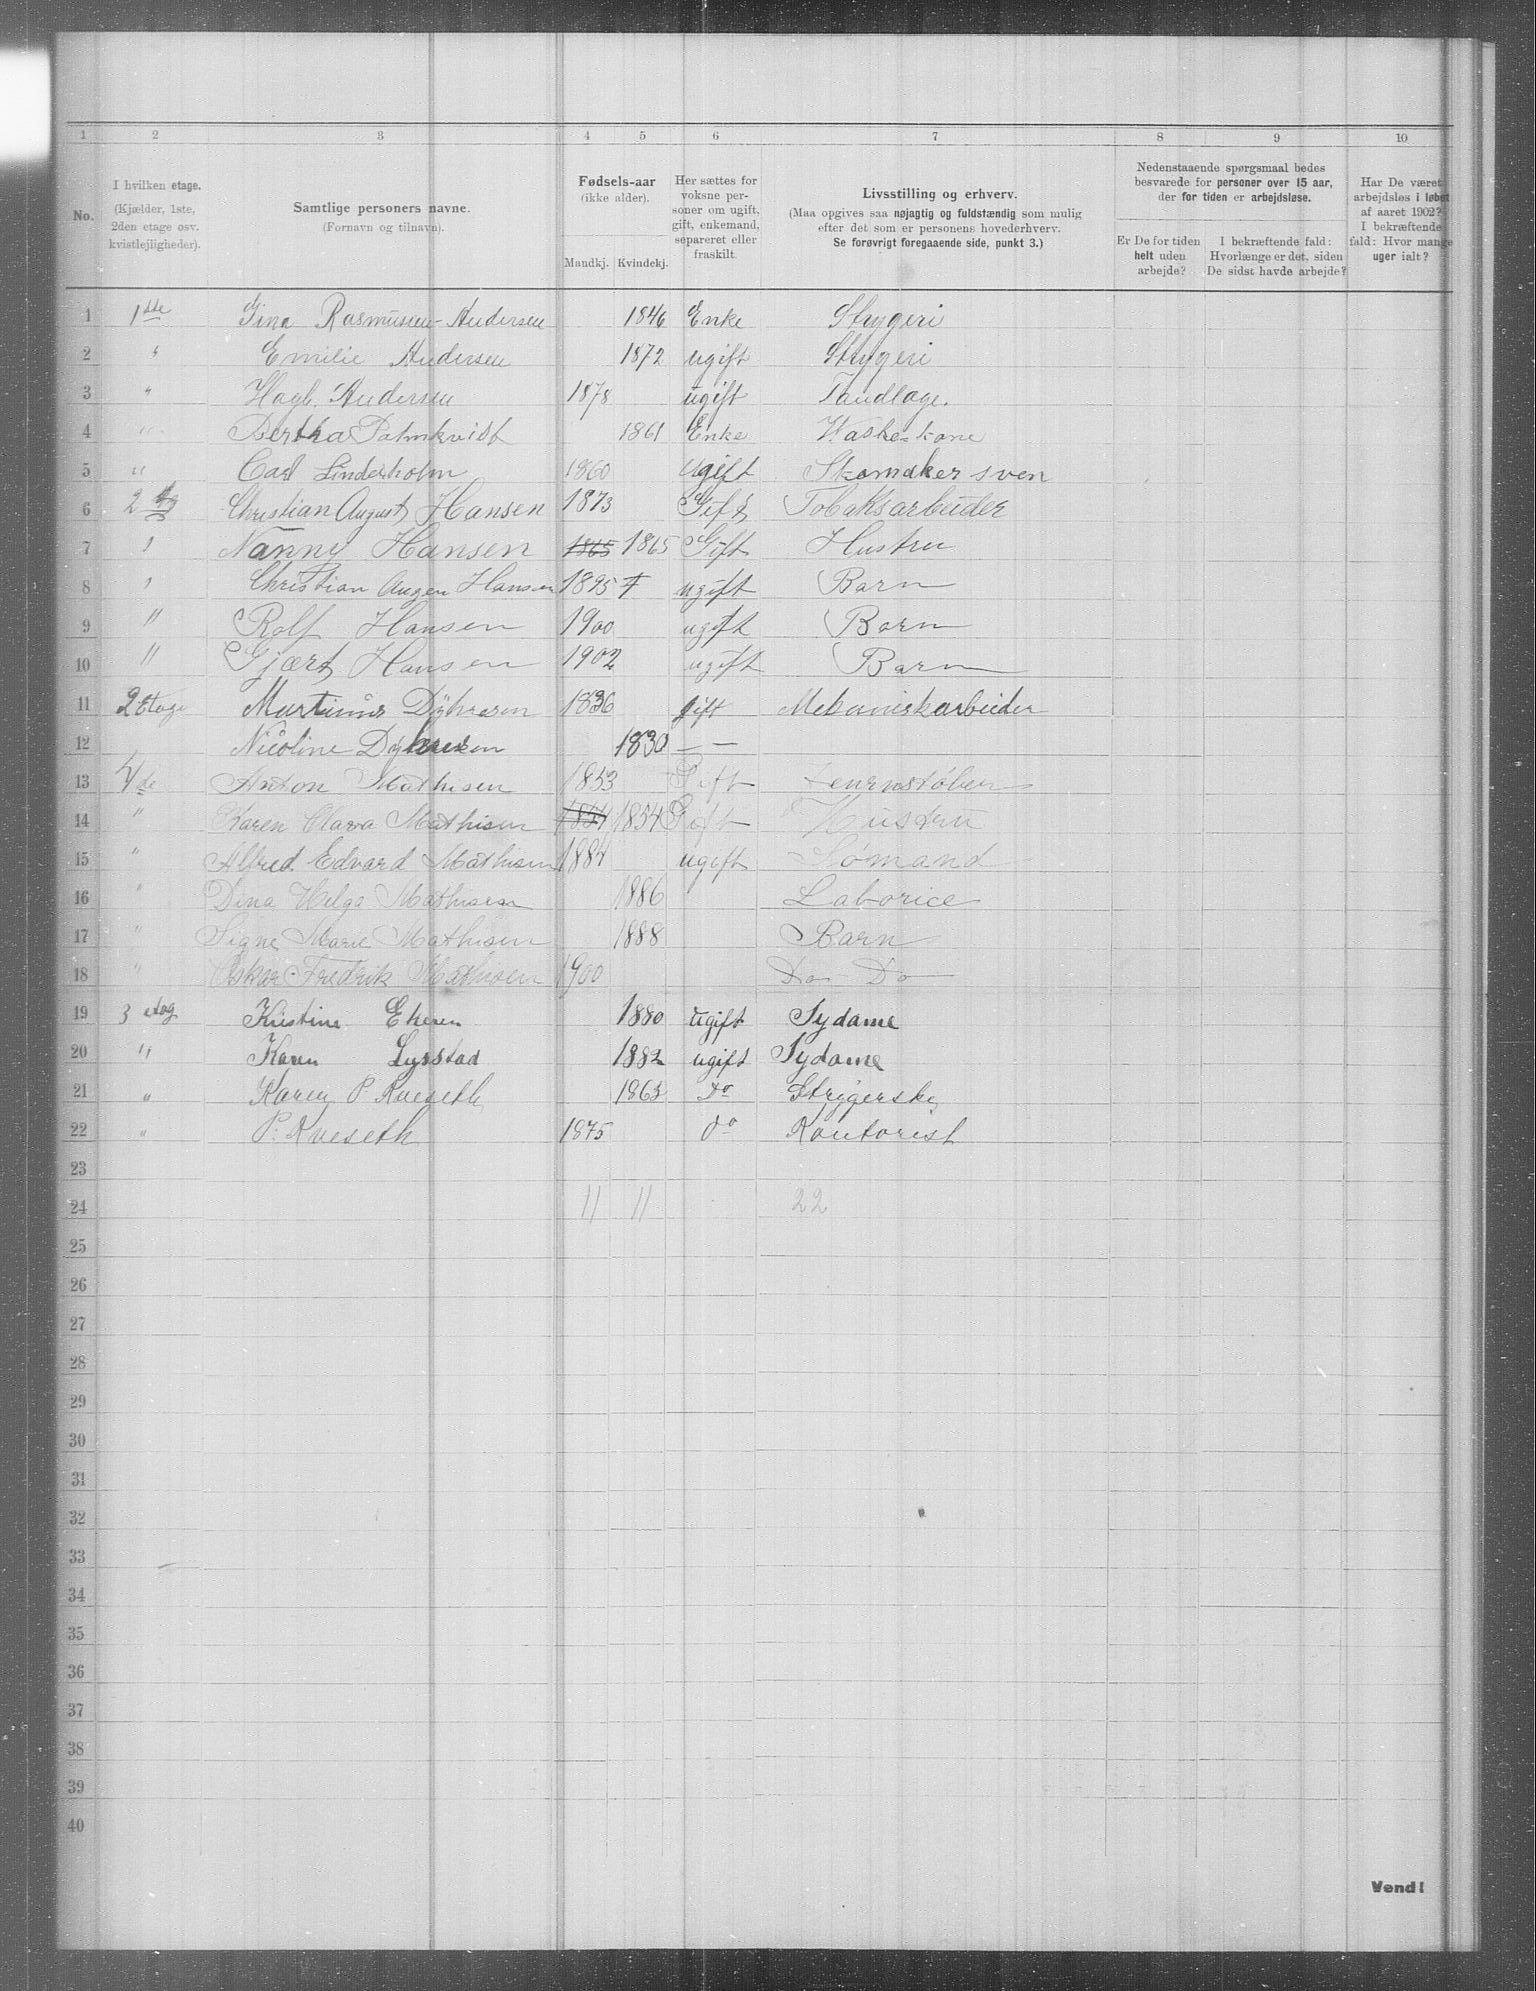 1 2 3 4 5 6 7 8 9 10
No.
I hvilken etage.
(Kjælder, 1ste,
2den etage osv.
kvistlejligheder).
Samtlige personers navne.
(Fornavn og tilnavn).
Fødsels-aar
(ikke alder).
Mandkj. Kvindekj.
Her sættes for
voksne per-
soner om ugift,
gift, enkemand,
separeret eller
fraskilt.
Livsstilling og erhverv.
(Maa opgives saa nøjagtig og fuldstændig som mulig
efter det som er personens hovederhverv.
Se forøvrigt foregaaende side, punkt 3.)
Nedenstaaende spørgsmaal bedes
besvarede for personer over 15 aar,
der for tiden er arbejdsløse.
Er De for tiden
helt uden
arbejde?
I bekræftende fald:
Hvorlænge er det, siden
De sidst havde arbejde?
Har De været
arbejdsløs i løbet
af aaret 1902?
I bekræftende
fald: Hvor mange
uger ialt?
1 1ste Gina Rasmussen-Andersen 1846 Enke Strygeri
2 " Emilie Andersen 1872 ugift Strygeri
3 " Hagb. Andersen 1878 ugift Tandlæge.
4 " Bertha Palmkvidt 1861 Enke Vaskekone
5 " Carl Linderholm 1860 ugift Skomaker sven
6 2 Christian August Hansen 1873 Gift Tobaksarbeider
7 " Nanny Hansen 1865 1865 Gift Hustru
8 " Christian Augen Hansen 1895 ugift Barn
9 " Rolf Hansen 1900 ugift Barn
10 " Gjært Hansen 1902 ugift Barn
11 2 Etage Martinus Dyhresen 1836 gift Mekaniskarbeider
12 Nicoline Dyhresen 1830 — —
13 Anton Mathisen 1853 Gift
14 " Karen Clara Mathisen 1854 1854 Gift Hustru
15 " Alfred Edvard Mathisen 1884 ugift Sømand
16 " Dina Helga Mathisen 1886 Laborice
17 " Signe Marie Mathisen 1888 Barn
18 " Oskar Fredrik Mathisen 1900 Do Do
19 3 etag Kristine Ekeren 1880 Ugift Sydame
20 " Karen Lysstad 1882 ugift Sydame
21 " Karen P Kveseth 1863 Do Strygerske
22 " P. Kveseth 1875 do Kontorist
23
24 11 11 22
25
26
27
28
29
30
31
32
33
34
35
36
37
38
39
40
Vend!